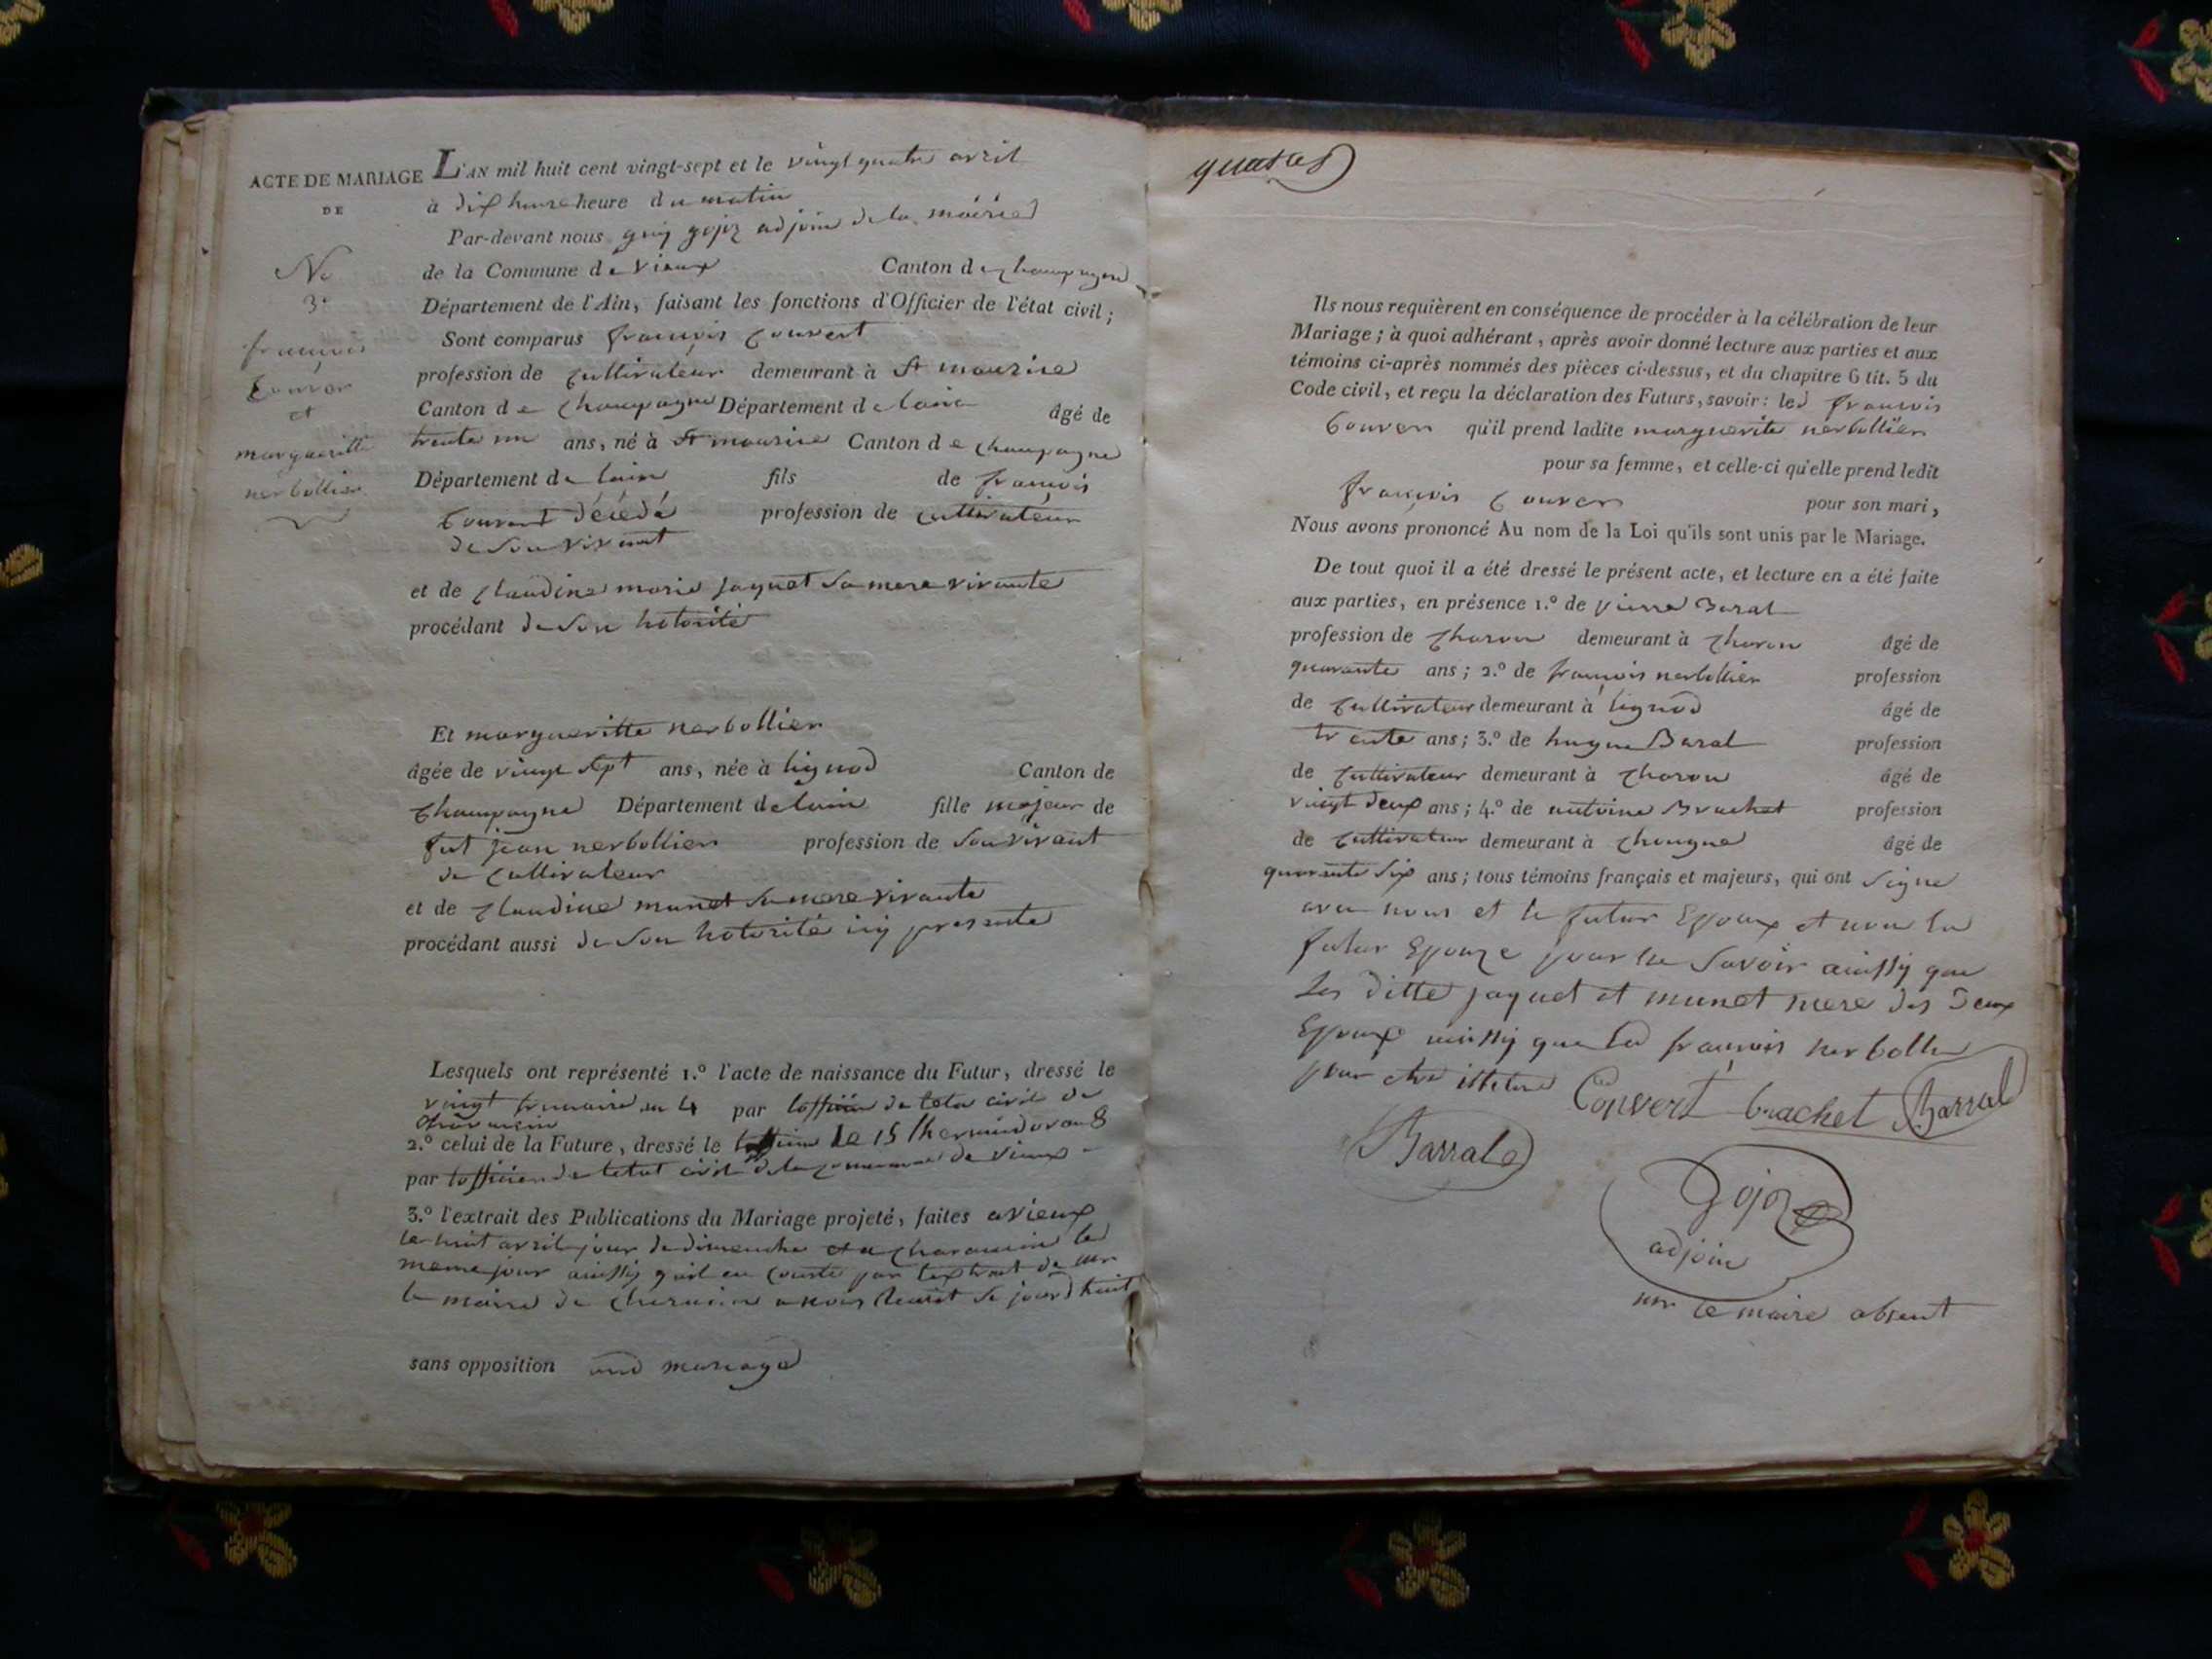 ACTE DE MARIAGE
DE
No
3e
françois
Couver
et
margueritte
nerbollier
L'AN mil huit cent vingt-sept et le vingt quatre avril
à dix heure heure du matin
Par-devant nous guy gojoz adjoin de la mairie
de la Commune de Vieux Canton de champagne
Département de l'Ain, faisant les fonctions d'Officier de l'état civil;
Sont comparus françois Couvert
profession de Cultivateur demeurant à St maurice
Canton de Champagne Département de lain âgé de
trente un ans, né à St maurice Canton de Champagne
Département de lain fils de françois
Couvert décédé profession de cultivateur
de Son Vivant
et de Claudine marie jaquet Sa mere vivante
procédant de Son hotorité
Et margueritte nerbollier
âgée de vingt Sept ans, née à lignod Canton de
Champagne Département de lain fille majeur de
fut jean nerbollier profession de Son vivant
de Cultivateur
et de Claudine munet Sa mere vivante
procédant aussi de Son hotorité icy presente
Lesquels ont représenté 1.º l'acte de naissance du Futur, dressé le
vingt an 4 par de civil de
2.º celui de la Future, dressé le le 15 thermidor an 8
par lofficier de letat civil de la commune de Vieux
3.º l'extrait des Publications du Mariage projeté, faites a Vieux
le huit avril jour de dimanche et a charancin le
meme jour ainssy quil en conste par lextrait de mr
le maire de de jourdhuit
sans opposition aud mariage
quatre
Ils nous requièrent en conséquence de procéder à la célébration de leur
Mariage; à quoi adhérant, après avoir donné lecture aux parties et aux
témoins ci-après nommés des pièces ci-dessus, et du chapitre 6 tit. 5 du
Code civil, et reçu la déclaration des Futurs, savoir: led françois
Couver qu'il prend ladite marguerite nerbollier
pour sa femme, et celle-ci qu'elle prend ledit
françois Couver pour son mari,
Nous avons prononcé Au nom de la Loi qu'ils sont unis par le Mariage.
De tout quoi il a été dressé le présent acte, et lecture en a été faite
aux parties, en présence 1.º de pierre Baral
profession de Charon demeurant à Charon âgé de
quarante ans; 2.º de françois nerbollier profession
de Cultivateur demeurant à lignod âgé de
trente ans; 3.º de hugue Baral profession
de Cultivateur demeurant à Charon âgé de
vingt deux ans; 4.º de antoine Brachet profession
de Cultivateur demeurant à Chongne âgé de
quarante Six ans; tous témoins français et majeurs, qui ont Signe
avec nous et le futur Epoux et non la
futur Epouze pour ne Savoir ainssy que
les ditte jaquet et munet mere des deux
Epoux ainssy que led françois nerbollier
pour etre illetere Convert brachet Barral
Barral
Gojoz
adjoin
mr le maire absent